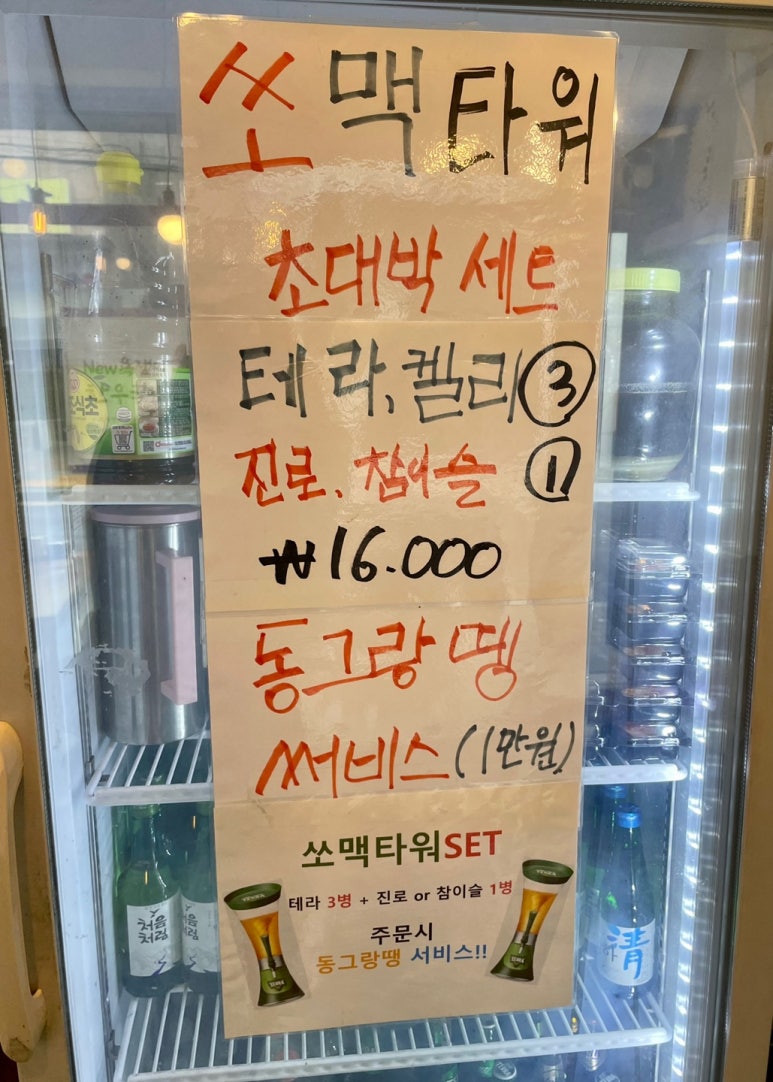 쏘맥타워
초대박 세트
테라, 켈리 ③
진로, 참이슬 ①
₩16.000
동그랑땡
써비스 (1만원)
쏘맥타워SET
테라 3병 + 진로 or 참이슬 1병
주문시
동그랑땡 서비스!!
TERRA
처음
처럼
淸